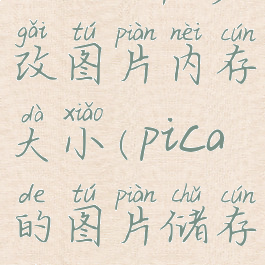 gǎi tú piàn nèi cún
改图片内存
dà xiǎo
大小(pica
de tú piàn chǔ cún
的图片储存